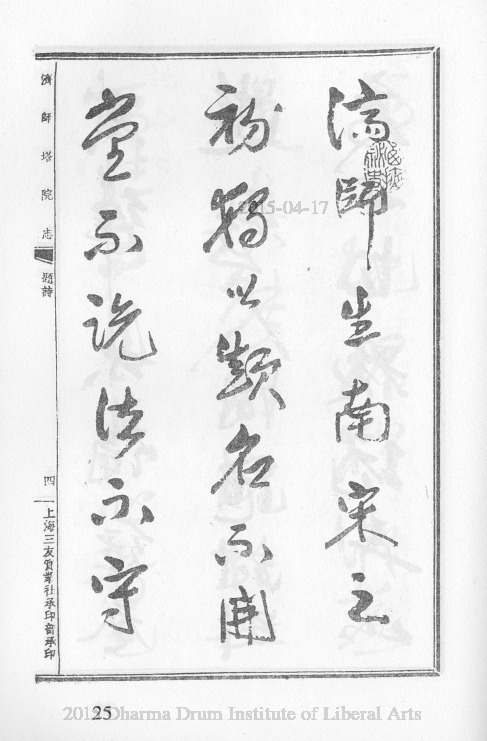 濟師生南宋之
初獨以顛名不開
堂不說法不守
濟師塔院志
題詩
四
上海三友實業社承印
2015-04-17
25
2015 Dharma Drum Institute of Liberal Arts